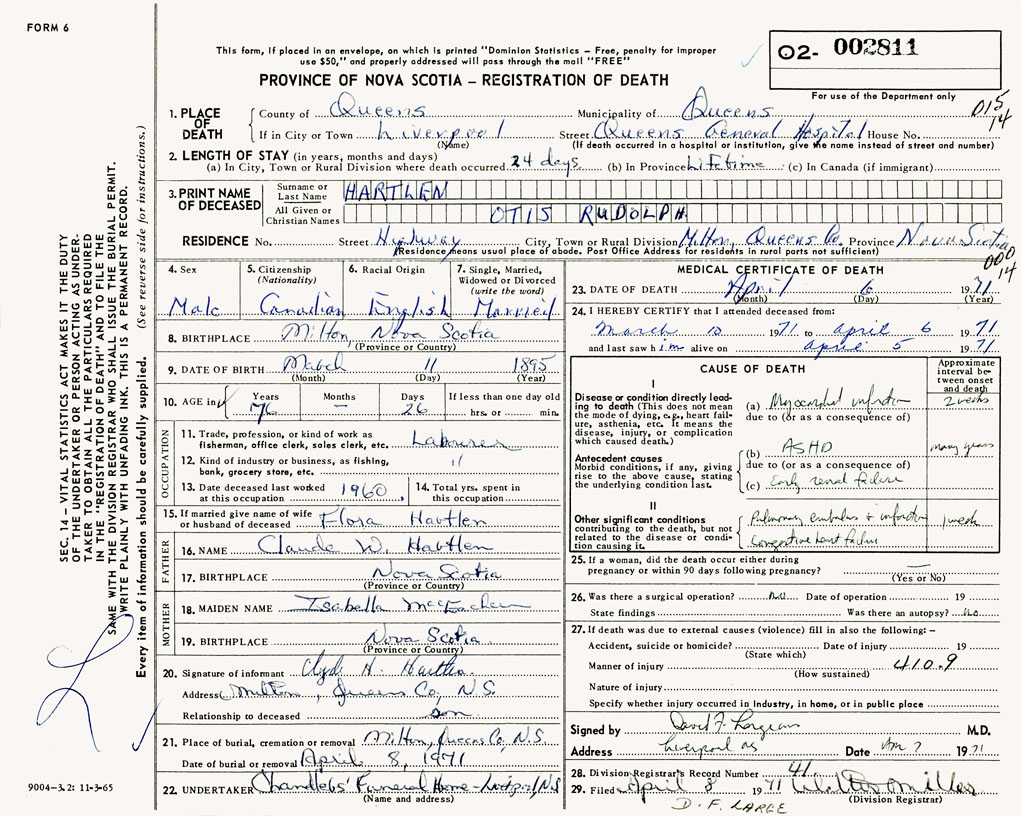 FORM 6
This form, if placed in an envelope, on which is printed "Dominion Statistics – Free, penalty for improper
use $50," and properly addressed will pass through the mail "FREE"
PROVINCE OF NOVA SCOTIA – REGISTRATION OF DEATH
02- 002811
For use of the Department only
015
14
1. PLACE OF DEATH
County of Queens Municipality of Queens
If in City or Town Liverpool Street Queens General Hospital House No.
(Name) (If death occurred in a hospital or institution, give the name instead of street and number)
2. LENGTH OF STAY (in years, months and days)
(a) In City, Town or Rural Division where death occurred 24 days (b) In Province Lifetime (c) In Canada (if immigrant)
3. PRINT NAME OF DECEASED
Surname or Last Name HARTLEN
All Given or Christian Names OTIS RUDOLPH
RESIDENCE No. Street Highway City, Town or Rural Division Milton, Queens Co. Province Nova Scotia
(Residence means usual place of abode. Post Office Address for residents in rural parts not sufficient)
000
14
4. Sex
Male
5. Citizenship
(Nationality)
Canadian
6. Racial Origin
English
7. Single, Married,
Widowed or Divorced
(write the word)
Married
8. BIRTHPLACE Milton, Nova Scotia
(Province or Country)
9. DATE OF BIRTH March 11 1895
(Month) (Day) (Year)
10. AGE in Years 76 Months – Days 26 If less than one day old
hrs. or min.
OCCUPATION
11. Trade, profession, or kind of work as
fisherman, office clerk, sales clerk, etc. Labourer
12. Kind of industry or business, as fishing,
bank, grocery store, etc. "
13. Date deceased last worked
at this occupation 1960
14. Total yrs. spent in
this occupation
15. If married give name of wife
or husband of deceased Flora Hartlen
FATHER
16. NAME Claude W. Hartlen
17. BIRTHPLACE Nova Scotia
(Province or Country)
MOTHER
18. MAIDEN NAME Isabella MacEachern
19. BIRTHPLACE Nova Scotia
(Province or Country)
20. Signature of informant Clyde H. Hartlen
Address Milton, Queens Co, N.S.
Relationship to deceased son
21. Place of burial, cremation or removal Milton, Queens Co, N.S.
Date of burial or removal April 8, 1971
22. UNDERTAKER Chandlers' Funeral Home N.S
(Name and address)
MEDICAL CERTIFICATE OF DEATH
23. DATE OF DEATH April 6 1971
(Month) (Day) (Year)
24. I HEREBY CERTIFY that I attended deceased from:
March 10 1971 to April 6 1971
and last saw him alive on April 5 1971
CAUSE OF DEATH
Approximate
interval be-
tween onset
and death
I
Disease or condition directly lead-
ing to death (This does not mean
the mode of dying, e.g., heart fail-
ure, asthenia, etc. It means the
disease, injury, or complication
which caused death.)
(a) Myocardial infarction 2 weeks
due to (or as a consequence of)
Antecedent causes
Morbid conditions, if any, giving
rise to the above cause, stating
the underlying condition last.
(b) ASHD many years
due to (or as a consequence of)
(c) Early renal failure
II
Other significant conditions
contributing to the death, but not
related to the disease or condi-
tion causing it.
Pulmonary embolus + infarction 1 week
Congestive heart failure
25. If a woman, did the death occur either during
pregnancy or within 90 days following pregnancy? –
(Yes or No)
26. Was there a surgical operation? no Date of operation 19
State findings Was there an autopsy? No
27. If death was due to external causes (violence) fill in also the following: –
Accident, suicide or homicide? Date of injury 19
(State which)
Manner of injury 410.9
(How sustained)
Nature of injury
Specify whether injury occurred in Industry, in home, or in public place
Signed by David F. M.D.
Address Liverpool NS Date Apr 7 1971
28. Division Registrar's Record Number 41
29. Filed April 8 1971 Walter Miller
(Division Registrar)
D. F. LARGE
SEC. 14 – VITAL STATISTICS ACT MAKES IT THE DUTY
OF THE UNDERTAKER OR PERSON ACTING AS UNDER-
TAKER TO OBTAIN ALL THE PARTICULARS REQUIRED
IN THE "REGISTRATION OF DEATH" AND TO FILE THE
SAME WITH THE DIVISION REGISTRAR WHO SHALL ISSUE THE BURIAL PERMIT.
WRITE PLAINLY WITH UNFADING INK. THIS IS A PERMANENT RECORD.
Every item of information should be carefully supplied. (See reverse side for instructions.)
9004-3.2: 11-3-65